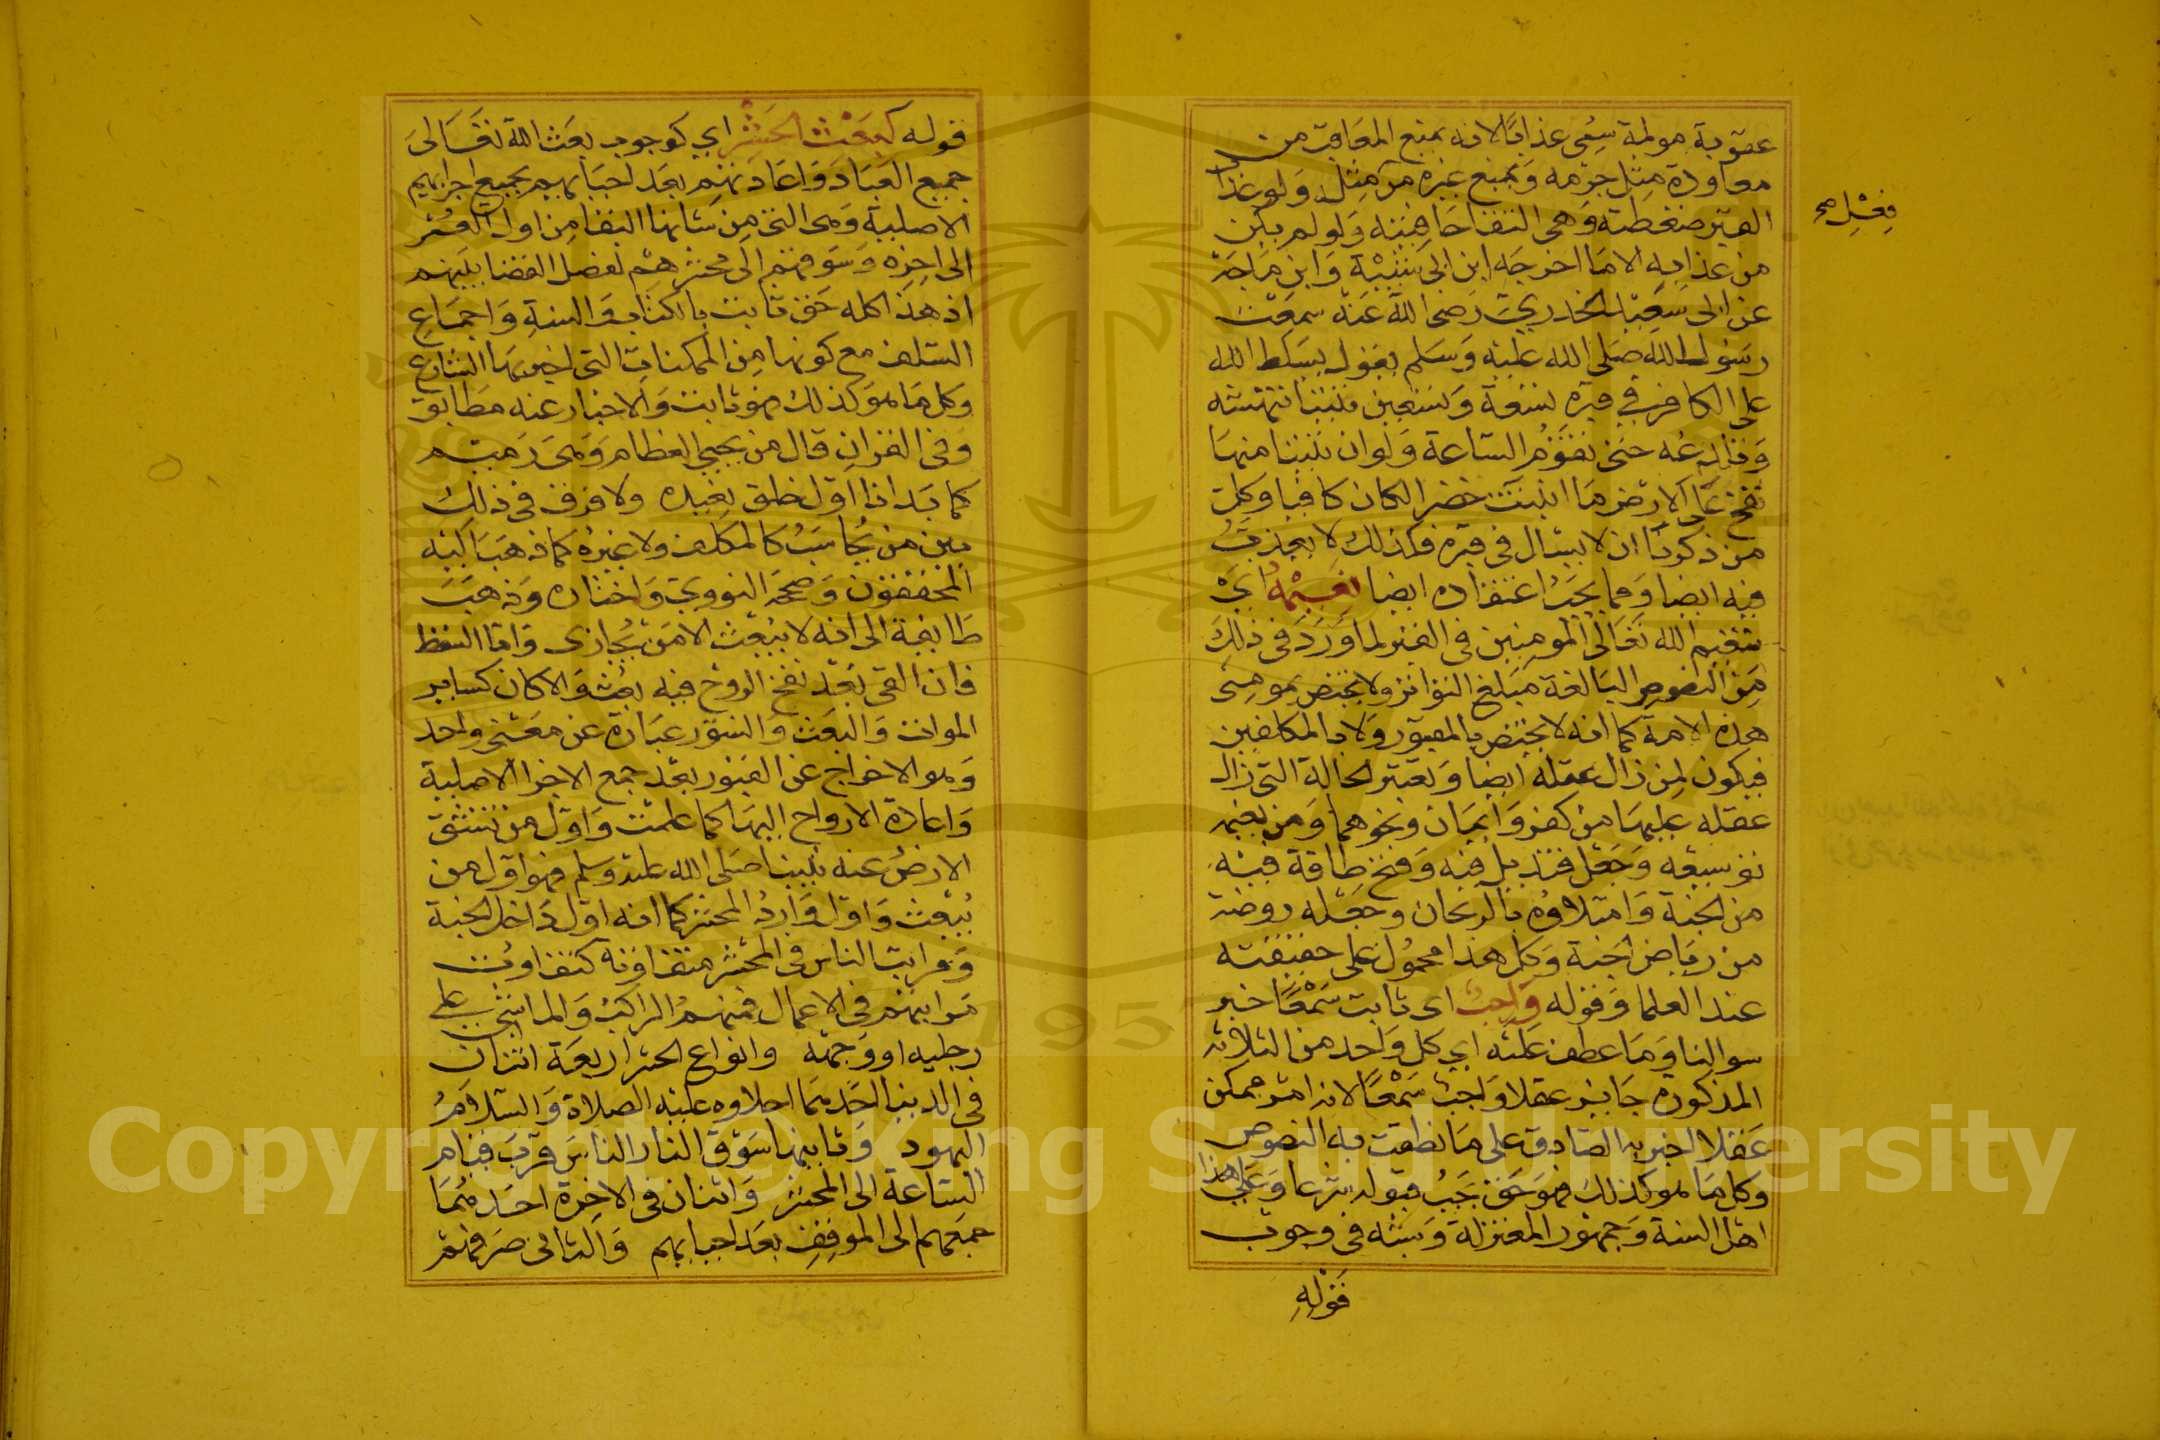 عقوبة مولمة سمى عذابا لانه يمنع المعاقب من
معاودة مثل جرمه ويمنع غيره من مثل ولو عذاب
فعل صح
القبر ضغطته وهى التقاحافتيه ولو لم يكن
من عذابه الا ما اخرجه ابن ابى شيبة وابن ماجة
عن ابى سعيد الخدري رضى الله عنه سمعت
رسول الله صلى الله عليه وسلم يقول يسلط الله
على الكافر في قبره تسعة وتسعين تنينا تنهشه
وتلدغه حتى تقوم الساعة ولو ان تنينا منها
نفخ على الارض ما انبتت خضرا لكان كافيا وكل
من ذكرنا انه لا يسال فى قبره فكذلك لا يعذب
فيه ايضا ومما يجب اعتقاده ايضا نعيمه اي
تنعيم الله تعالى المومنين فى القبر لما ورد فى ذلك
من النصوص البالغة مبلغ التواتر ولا يختص بمومنى
هذه الامة كما انه لا يختص بالمقبور ولا بالمكلفين
فيكون لمن زال عقله ايضا وتعتبر الحالة التى زال
عقله عليها من كفر وايمان ونحوهما ومن نعيمه
توسيعه وجعل قنديل فيه وفتح طاقة فيه
من الجنة وامتلاوه بالريحان وجعله روضة
من رياض الجنة وكل هذا محمول على حقيقته
عند العلما وقوله واجب اى ثابت سمعا خبر
سوالنا وما عطف عليه اي كل واحد من الثلاثة
المذكورة جايز عقلا واجب سمعا لانه امر ممكن
عقلا اخبر به الصادق على ما نطقت به النصوص
وكل ما هو كذلك فهو حق يجب قبوله شرعا وعلى هذا
اهل السنة وجمهور المعتزلة وشبه فى وجوب
قوله
قوله كبعث الحشر اي كوجوب بعث الله تعالى
جميع العباد واعادتهم بعد احيايهم بجميع اجزايهم
الاصلية وهى التى من شانها البقا من اول العمر
الى اخره وسوقهم الى محشرهم لفصل القضا بينهم
اذ هذا كله حق ثابت بالكتاب والسنة واجماع
السلف مع كونها من الممكنات التى اخبر بها الشارع
وكل ما هو كذلك فهو ثابت والاخبار عنه مطابق
وفى القران قال من يحيى العظام وهى رميم
كما بدانا اول خلق نعيده ولا فرق فى ذلك
بين من يحاسب كالمكلف ولا غيره كما ذهب اليه
المحققون وصححه النووي واختاره وذهب
طايفة الى انه لا يبعث الا من يجازى واما السقط
فان القى بعد نفخ الروح فيه بعث والا كان كساير
الموات والبعث والنشور عبارة عن معنى واحد
وهو الاخراج عن القبور بعد جمع الاجزا الاصلية
واعادة الارواح اليها كما علمت واول من تنشق
الارض عنه نبينا صلى الله عليه وسلم فهو اول من
يبعث واول وارد المحشر كما انه اول داخل الجنة
ومراتب الناس فى المحشر متفاوته كتفاوت
مراتبهم فى الاعمال فمنهم الراكب والماشى على
رجليه او وجهه وانواع الحشر اربعة اثنان
فى الدنيا احدهما اجلاوه عليه الصلاة والسلام
اليهود وثانيهما سوق النار الناس قرب قيام
الساعة الى المحشر واثنان فى الاخرة احدهما
جمعهم الى الموقف بعد احيايهم والثانى صرفهم
Copyright © King Saud University
1957